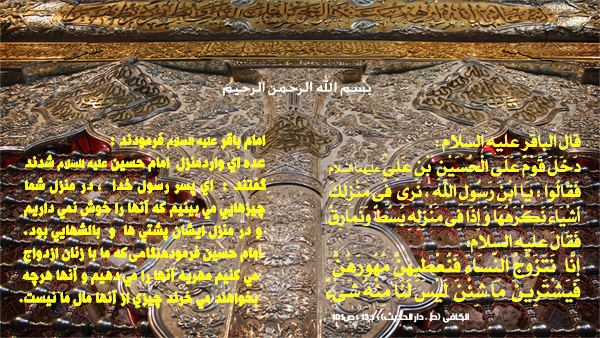 بسم الله الرحمن الرحیم
قال الباقر علیه السلام :
دَخَلَ قَوْمٌ عَلَى الْحُسَيْنِ بْنِ عَلىٍّ علیهما السلام
فَقالُوا ، يَا ابْنَ رسول اللَّه ، نَرى فى مَنْزِلِكَ
أشْياءَ نَكْرَهُها وَ إذا فى مَنْزِلِهِ بُسُطٌ وَ نَمارِقُ
فَقالَ علیه السلام:
إنَّا نَتَزَوَّجُ النِّساءَ فَنُعْطيهِنَّ مُهُورَهُنَّ
فَيَشْتَرينَ ما شِئْنَ لَيْسَ لَنا مِنْهُ شَىْءٌ
الکافی (ط ، دار الحدیث)؛ ج13 ؛ ص101
امام باقر علیه السلام فرمودند :
عده اي واردمنزل امام حسین علیه السلام شدند
گفتند : اي پسر رسول خدا ، در منزل شما
چیزهایی مي بینیم که آنها را خوش نمي داریم
و در منزل ایشان پشتي ها و بالشهایي بود.
امام حسین فرمودهنگامی که ما با زنان ازدواج
مي کنیم مهریه آنها را مي دهیم و آنها هرچه
بخواهند مي خرند چیزي از آنها مال ما نیست.